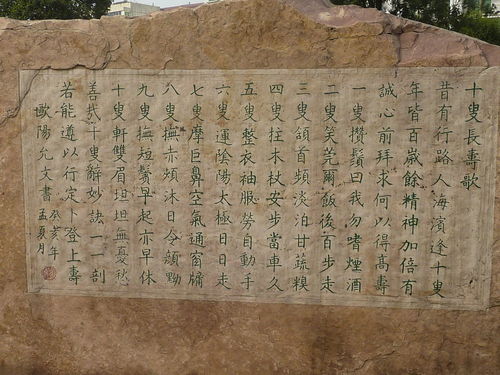 十叟長壽歌
昔有行路人海濱逢十叟
年皆百歲餘精神加倍有
誠心前拜求何以得高壽
一叟攢鬚曰我勿嗜煙酒
二叟笑莞爾飯後百步走
三叟頷首頻淡泊甘蔬糗
四叟拄木杖安步當車久
五叟整衣袖服勞自動手
六叟運陰陽太極日日走
七叟摩巨鼻空氣通窗牖
八叟撫赤頰沐日令顏黝
九叟撫短鬢早起亦早休
十叟軒雙眉坦坦無憂秋
善哉十叟辭妙訣一一剖
若能遵以行定卜登上壽
歐陽允文書
癸亥年
孟夏月